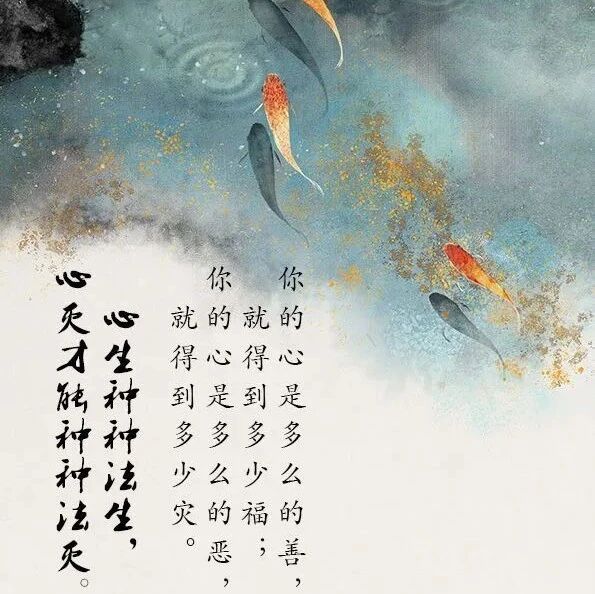 你的心是多么的善，
就得到多少福；
你的心是多么的恶，
就得到多少灾。
心生种种法生，
心灭才能种种法灭。